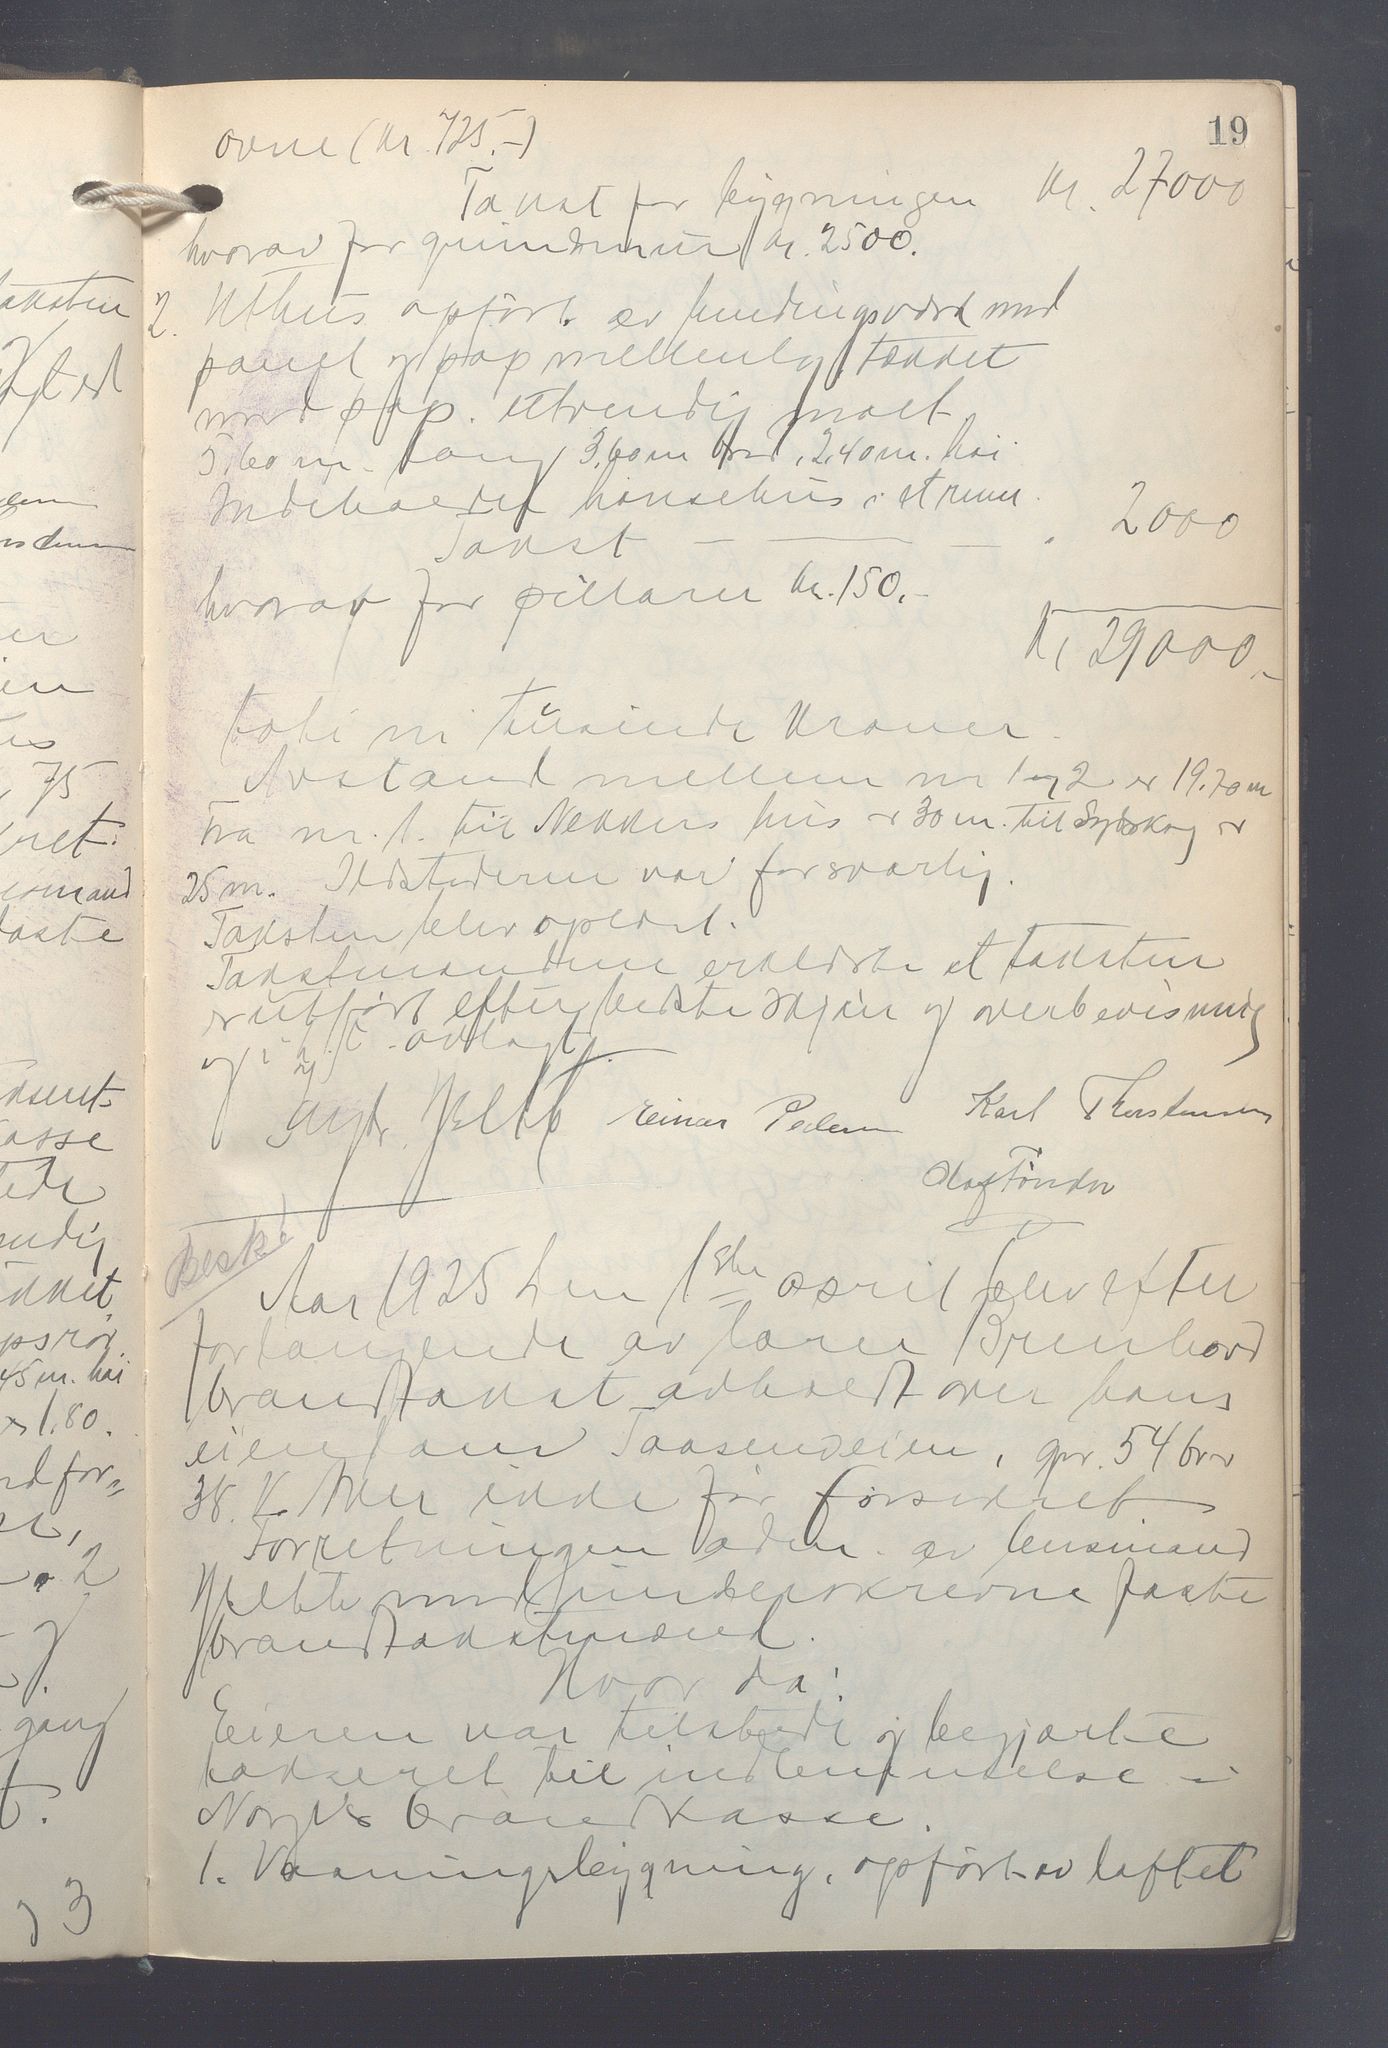 19
ovne (kr. 725.-)
Takst for bygningen kr. 27000
hvorav for grundmur kr. 2500.
2. Uthus opført av bindingsverk med
panel og pap mellemlag tækket
med pap. utvendig malt
5,60 m. lang 3,60 m bred, 2,40 m. høi
Indeholder hønsehus i et rum.
Takst — — — „ 2000
hvorav for pillarer kr. 150.-
Kr 29000.-
toti ni tusinde kroner.
Avstand mellem nr 1 og 2 er 19.70 m
Fra nr. 1. til Nekkers hus er 30 m. til er
25 m. Ildstederne var forsvarlig.
Taksten blev oplæst.
Takstmændene erklærte at taksten
er utført efter bedste skjøn og overbevisning
og i avlagt
Hjelte Einar Pedersen Karl Thorstensen
Olaf Tønder
Besk.
Aar 1925 den 1ste april blev efter
forlangende av lærer Brenhovd
brandtakst avholdt over hans
eiendom Taasenveien, gnr. 54 bnr
38. V. Aker ikke før forsikret
Forretningen adm. av lensmand
Hjelte med underskrevne faste
brandtakstmænd.
Hvor da:
Eieren var tilstede og begjærte
takseret til indlemmelse i
Norges Brandkasse.
1. Vaaningsbygning, opført av laftet
taksten
75
kret.
mand
faste
takseret
kasse
tækket
45 m. høi
x 1,80.
2
og
gang
og 3